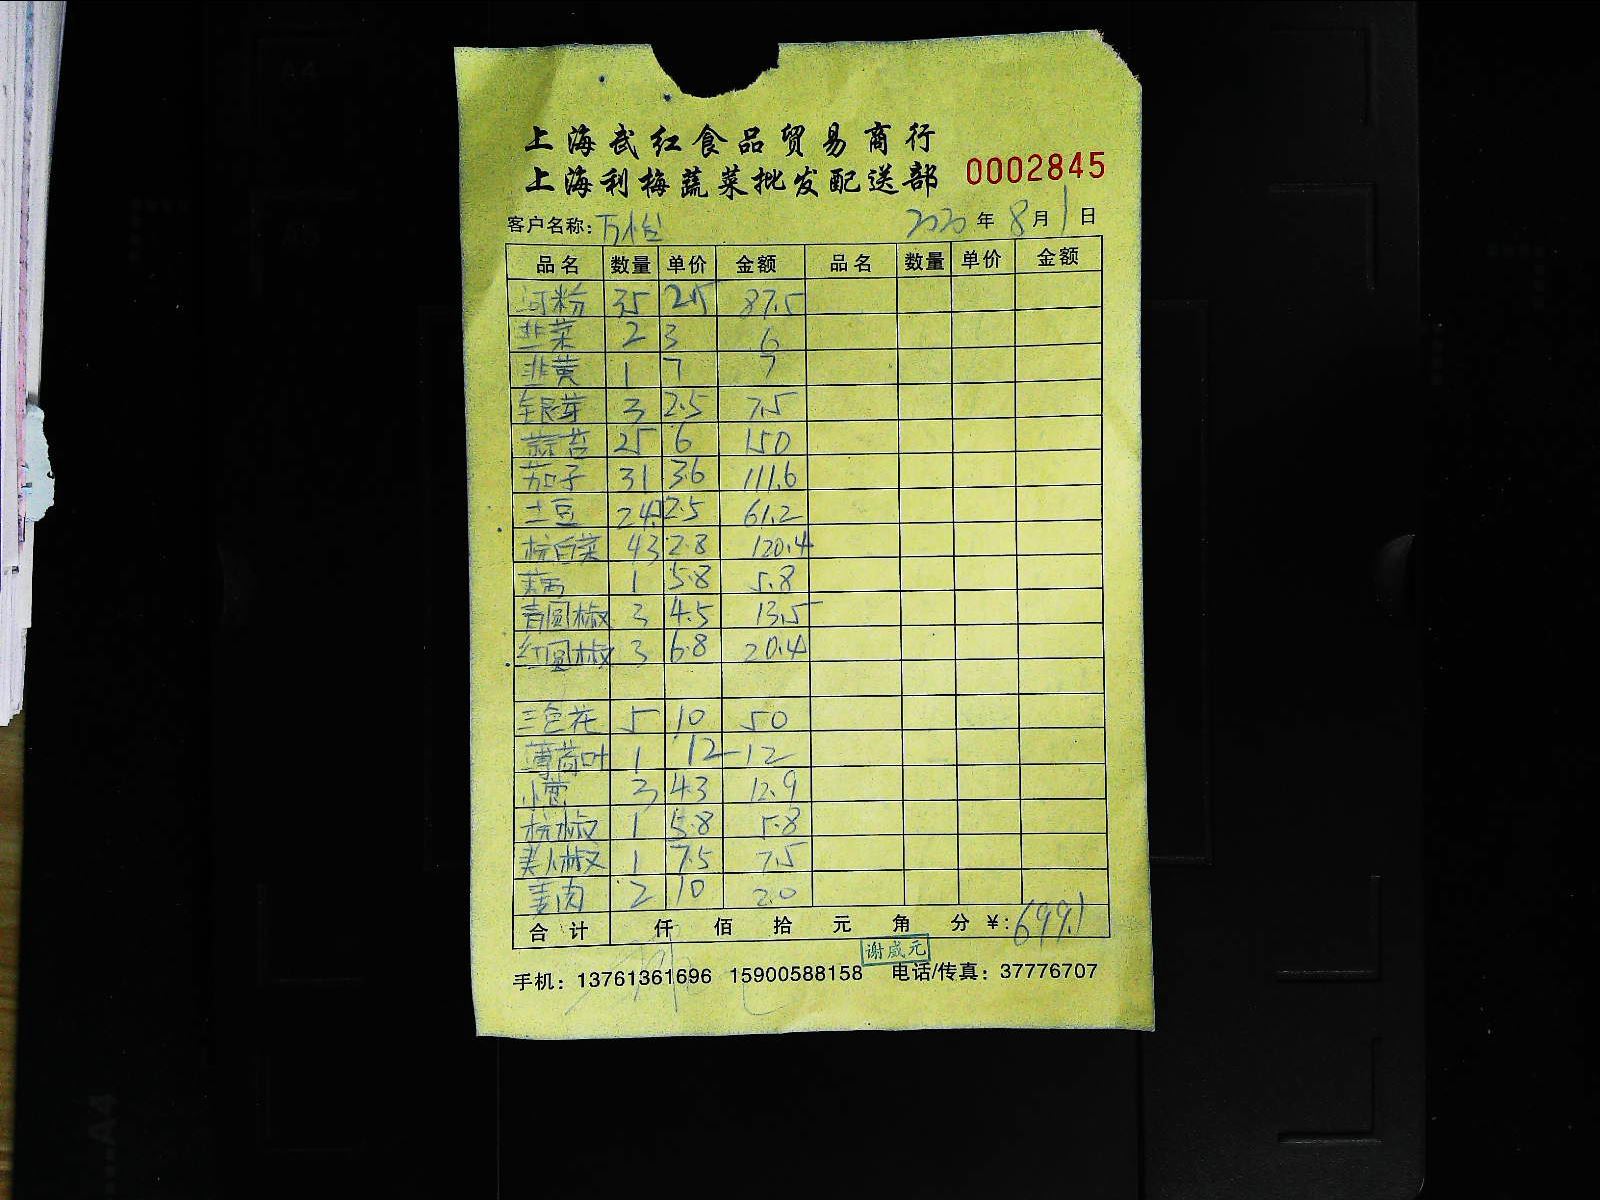 上海武红食品贸易商行
上海利梅蔬菜批发配送部 0002845
客户名称: 万怡 2020年8月1日
品名 数量 单价 金额 品名 数量 单价 金额
河粉 35 2.5 87.5
韭菜 2 3 6
韭黄 1 7 7
银芽 3 2.5 7.5
蒜苔 25 6 150
茄子 31 3.6 111.6
土豆 2.5 61.2
杭白菜 43 2.8 120.4
莴 1 5.8 5.8
青圆椒 3 4.5 13.5
红圆椒 3 6.8 20.4
三色花 5 10 50
薄荷叶 1 12 12
小葱 3 4.3 12.9
杭椒 1 5.8 5.8
美人椒 1 7.5 7.5
姜肉 2 10 20
合计 仟 佰 拾 元 角 分 ¥: 699.1
谢咸元
手机: 13761361696 15900588158 电话/传真: 37776707
A4
A5
A4